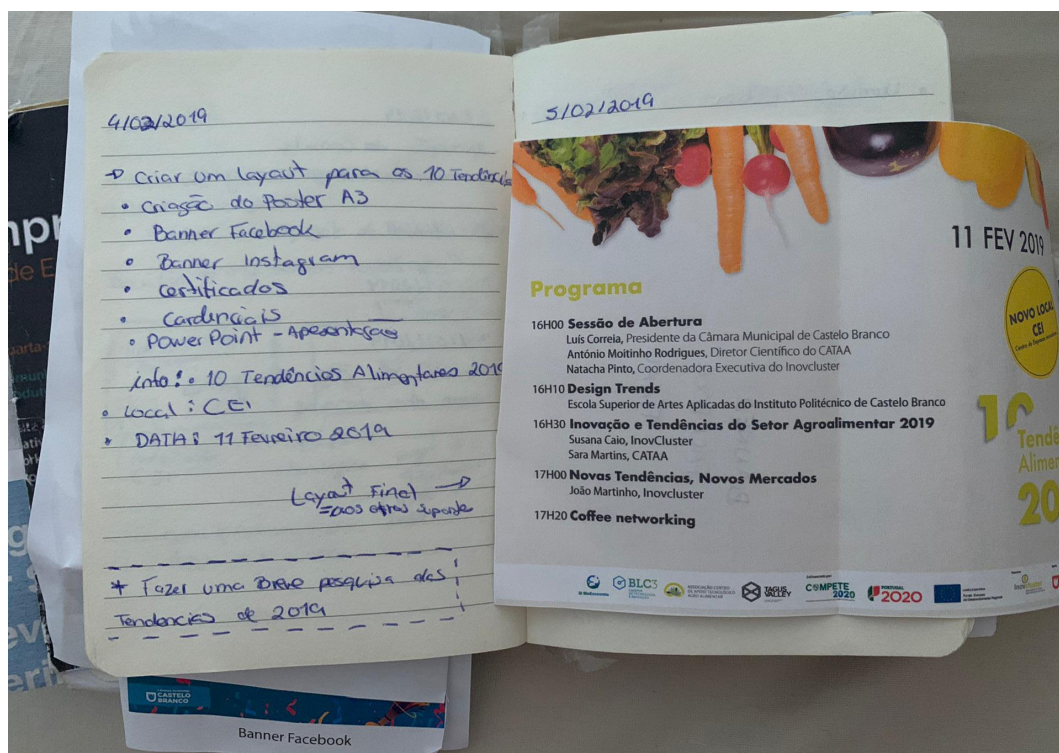 4/02/2019
Criar um layout para os 10 Tendências
• Criação do Poster A3
• Banner Facebook
• Banner Instagram
• certificados
• Cardenciais
• PowerPoint - Apesentação
info: • 10 Tendências Alimentares 2019
• Local: CEi
• DATA: 11 Fevreiro 2019
Layout Final →
= aos otros suporte
* Fazer uma Breve pesquisa das
Tendencias de 2019
5/02/2019
11 FEV 2019
NOVO LOCAL
CEI
Programa
16H00 Sessão de Abertura
Luís Correia, Presidente da Câmara Municipal de Castelo Branco
António Moitinho Rodrigues, Diretor Científico do CATAA
Natacha Pinto, Coordenadora Executiva do Inovcluster
16H10 Design Trends
Escola Superior de Artes Aplicadas do Instituto Politécnico de Castelo Branco
16H30 Inovação e Tendências do Setor Agroalimentar 2019
Susana Caio, InovCluster
Sara Martins, CATAA
17H00 Novas Tendências, Novos Mercados
João Martinho, Inovcluster
17H20 Coffee networking
10
Tendê
Alimen
20
BLC3
TAGUS
VALLEY
COMPETE
2020
PORTUGAL
2020
CASTELO
BRANCO
Banner Facebook